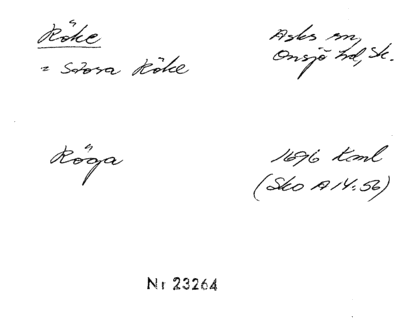 Röke
Asks sn,
= Stora Röke
Onsjö hd, Sk.
Röga
1696 Kml
(Sko A 14:56)
Nr 23264